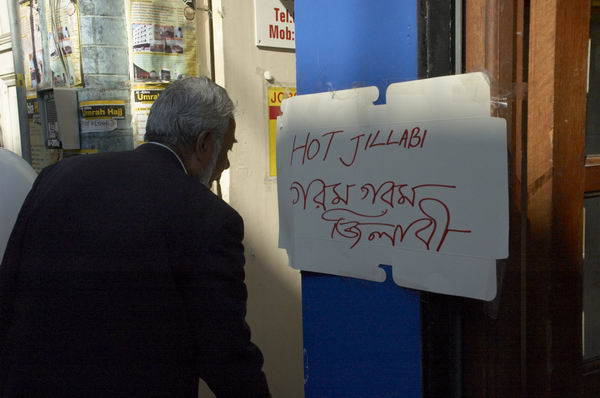 Tel:
Mob:
Umrah Hajj
Umrah
HOT JILLABI
গরম গরম
জিলাবী